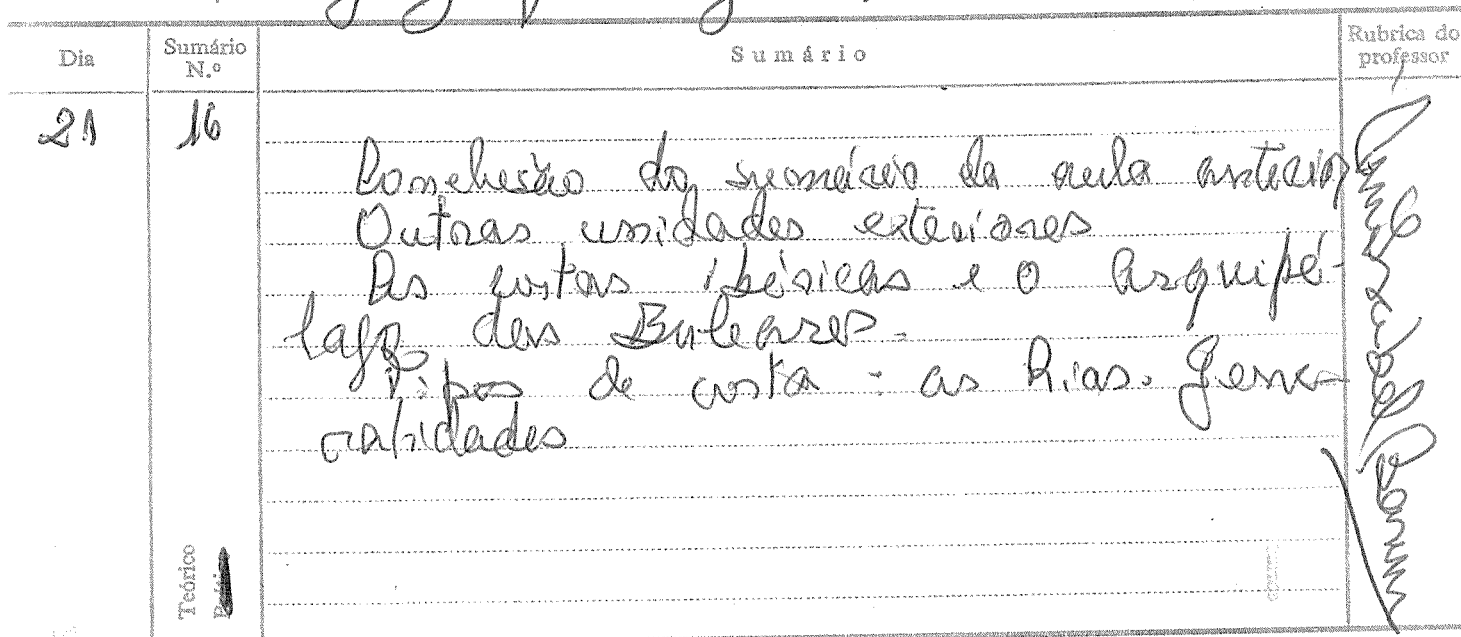 Dia
Sumário N.º
Sumário
Rubrica do professor
21
16
Conclusão do sumário da aula anterior
Outras unidades exteriores
As costas ibéricas e o Arquipé-
lago das Baleares.
Tipos de costa: as Rias. Gene-
ralidades
Teórico